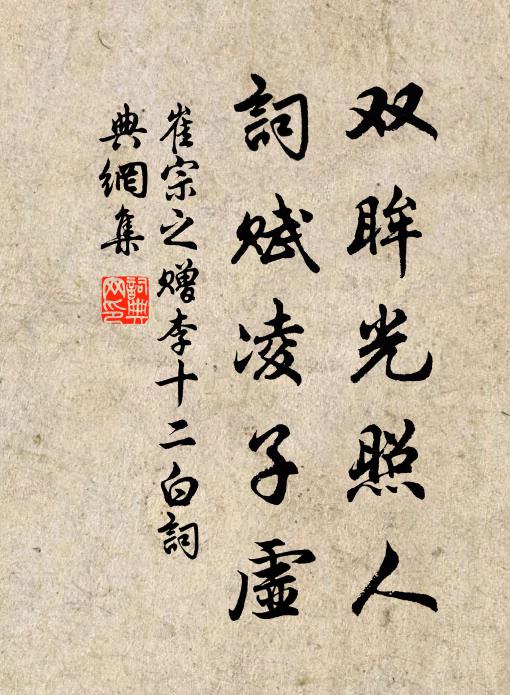 双眸光照人
詞赋凌子虚
崔宗之赠李十二白詞
典網集
詞典网印